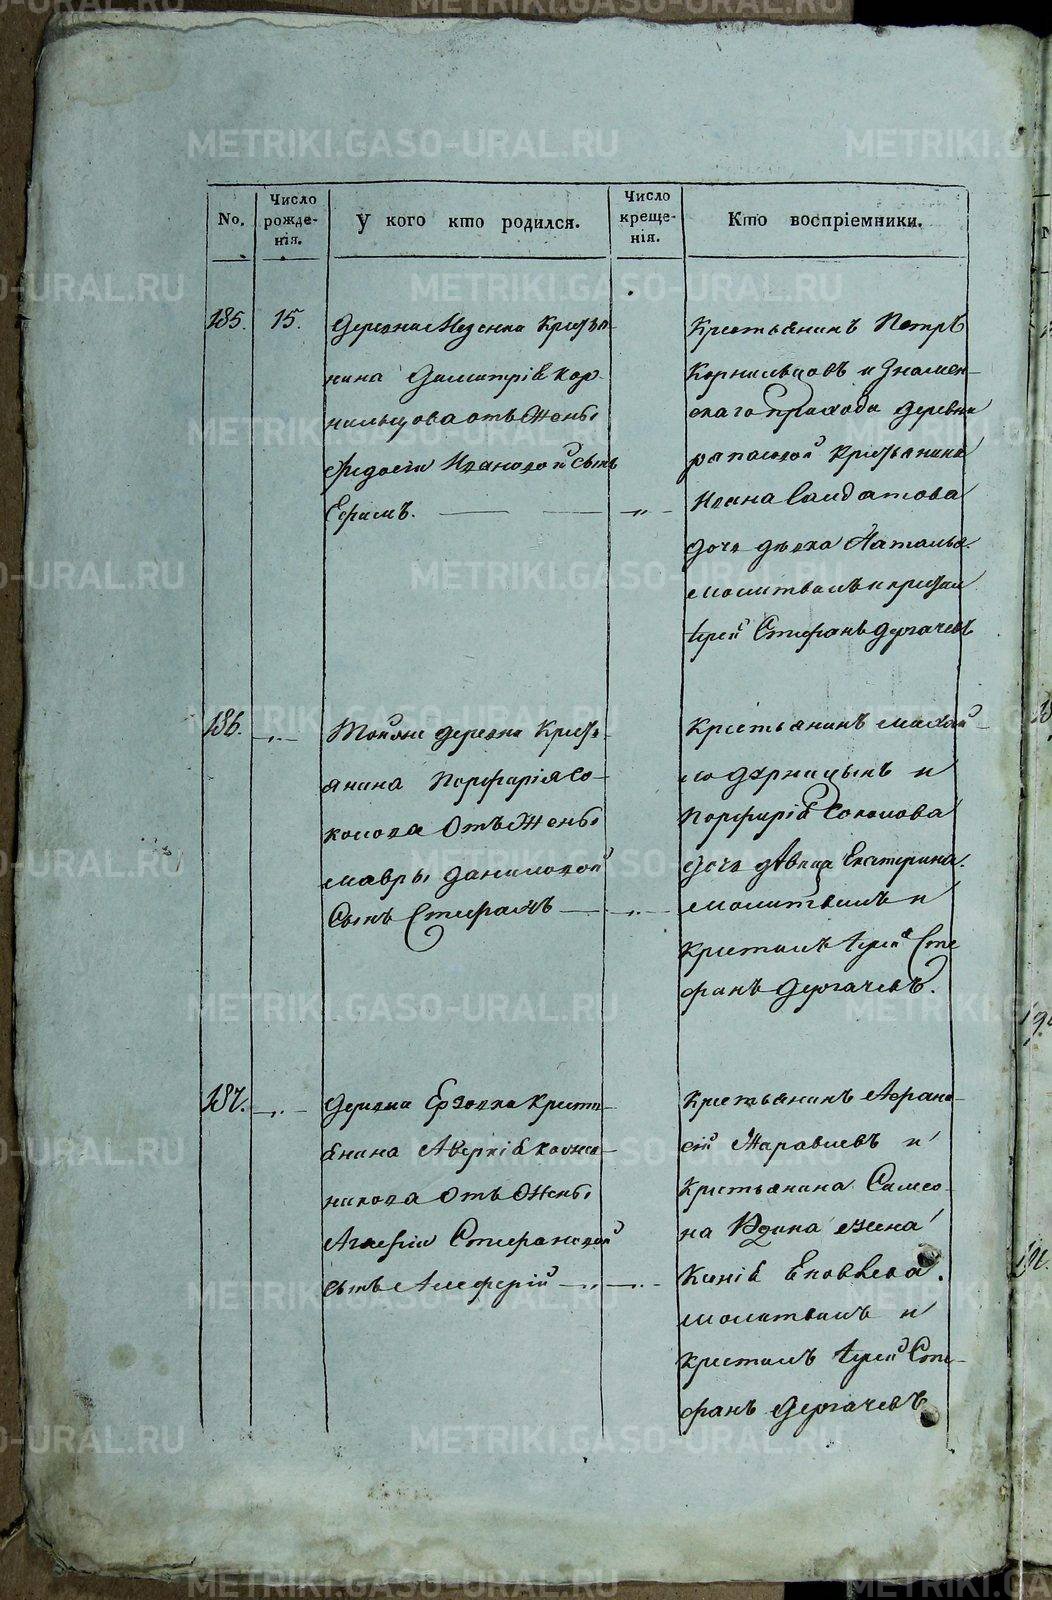 METRIKI.GASO-URAL.RU
No.
Число рожде-нія.
У кого кто родился.
Число креще-нія.
Кто воспріемники.
185.
15.
Деревни Крестья-
нина Димитрія Кор-
нильцова отъ Жены
Федосіи Ивановой сынъ
Ефимъ.
Крестьянинъ Петръ
Корнильцовъ и Знамен-
скаго прихода деревни
Крестьянина
Ивана Салдатова
дочь дѣвка Наталья.
молитвилъ и крестил
Іерей Стефанъ Дергачевъ
186.
Тойже деревни Кресть-
янина Порфирія Со-
колова Отъ Жены
Мавры Даниловой
Сынъ Стефанъ
Крестьянинъ Михай-
ло и
Порфирія Соколова
дочь дѣвица Екатерина.
молитвилъ и
крестилъ Іерей Сте
фанъ Дергачевъ.
187.
Деревни Ерзовка Кресть-
янина Аверкія Кожев-
никова Отъ Жены
Агафіи Стефановой
сынъ Алеферій
Крестьянинъ Афана-
сій Жаравлевъ и
Крестьянина Симео-
на жена
Ксенія Яковлева.
молитвилъ и
крестилъ Іерей Сте-
фанъ Дергачевъ